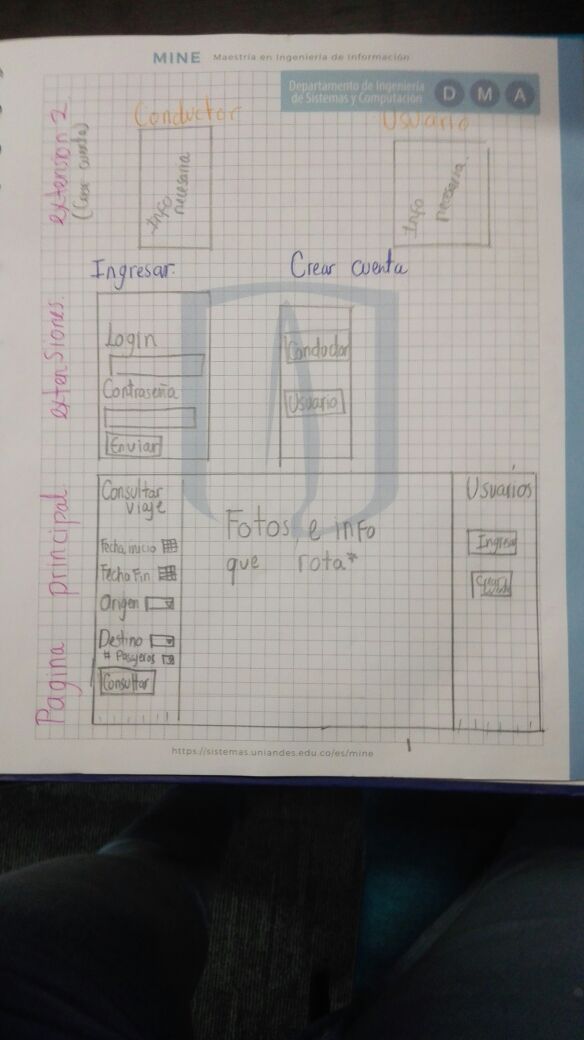 MINE Maestría en Ingeniería de Información
Departamento de Ingeniería
de Sistemas y Computación
D M A
extension 2
(Crear cuenta)
Conductor
Usuario
Info
necesaria
Info
necesaria
extensiones.
Ingresar.
Crear cuenta
Login
Contraseña
Enviar
Conductor
Usuario
Pagina principal
Consultar
viaje
Fecha inicio
Fecha Fin
Origen
Destino
# Pasajeros
Consultar
Fotos e info
que rota*
Usuarios
Ingresar
Crear
cuenta
https://sistemas.uniandes.edu.co/es/mine